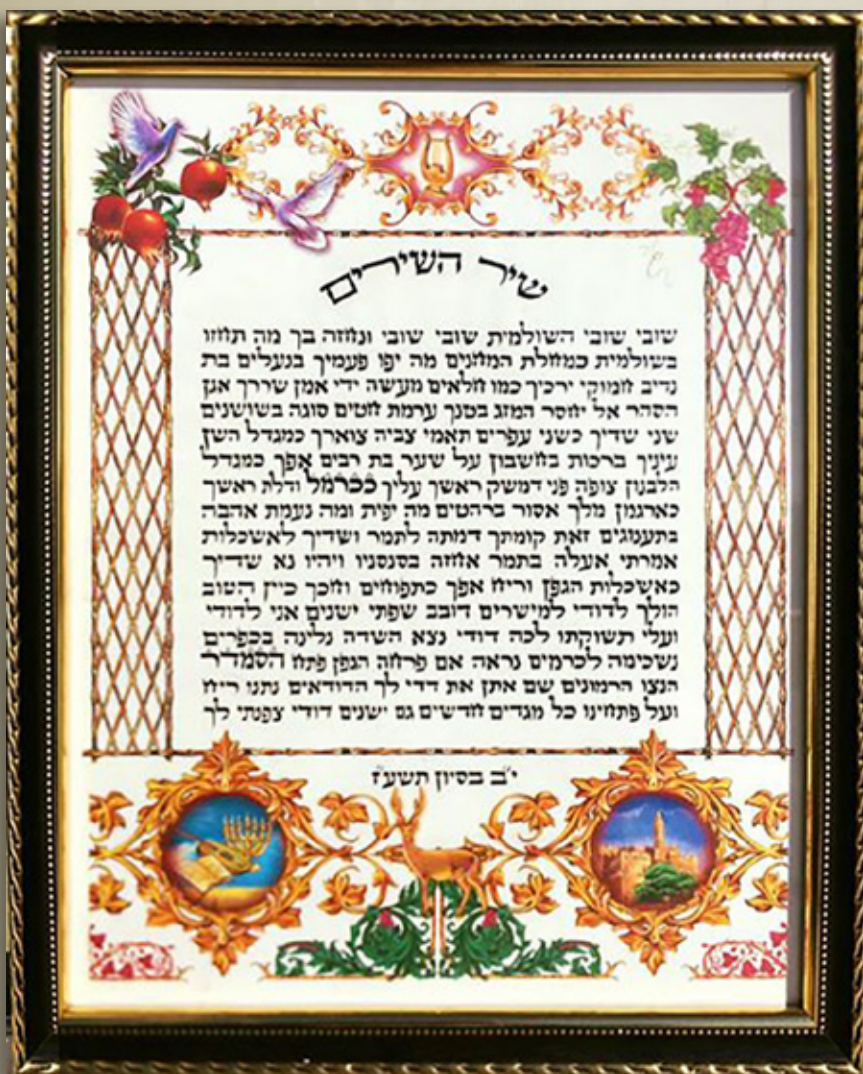 שיר השירים
שובי שובי השולמית שובי שובי ונחזה בך מה תחזו
בשולמית כמחלת המחנים מה יפו פעמיך בנעלים בת
נדיב חמוקי ירכיך כמו חלאים מעשה ידי אמן שררך אגן
הסהר אל יחסר המזג בטנך ערמת חטים סוגה בשושנים
שני שדיך כשני עפרים תאמי צביה צוארך כמגדל השן
עיניך ברכות בחשבון על שער בת רבים אפך כמגדל
הלבנון צופה פני דמשק ראשך עליך ככרמל ודלת ראשך
כארגמן מלך אסור ברהטים מה יפית ומה נעמת אהבה
בתענוגים זאת קומתך דמתה לתמר ושדיך לאשכלות
אמרתי אעלה בתמר אחזה בסנסניו ויהיו נא שדיך
כאשכלות הגפן וריח אפך כתפוחים וחכך כיין הטוב
הולך לדודי למישרים דובב שפתי ישנים אני לדודי
ועלי תשוקתו לכה דודי נצא השדה נלינה בכפרים
נשכימה לכרמים נראה אם פרחה הגפן פתח הסמדר
הנצו הרמונים שם אתן את דדי לך הדודאים נתנו ריח
ועל פתחינו כל מגדים חדשים גם ישנים דודי צפנתי לך
י"ב בסיון תשע"ז